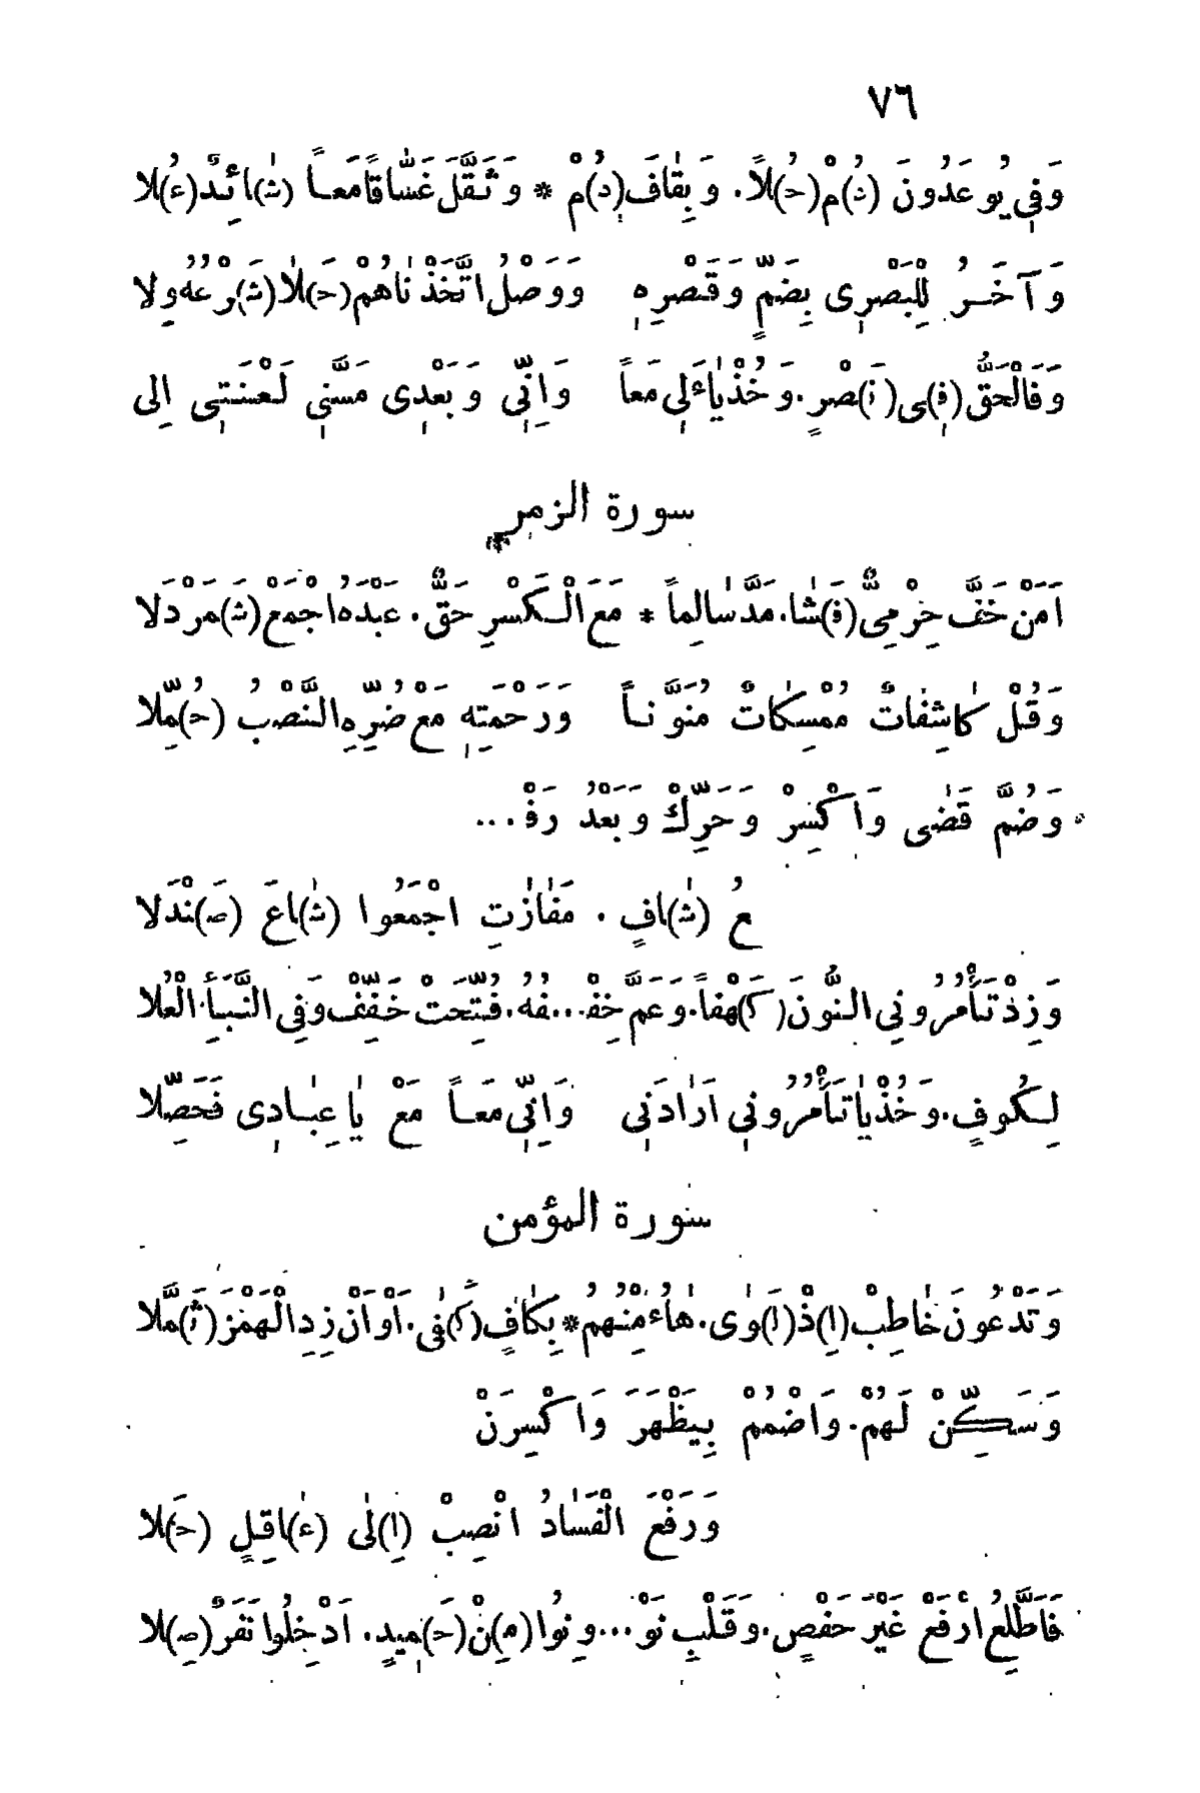 ٧٦
وَفِي يُوعَدُونَ (دُ)مْ(حُ)لاً. وَبِقَافَ(دُ)مْ * وَثَقَّلَ غَسَّاقًا مَعَاً (شَ)ائِدٌ(عُ)لا
وَآخَرُ لِلْبَصْرِى بِضَمٍّ وَقَصْرِهِ وَوَصْلُ اتَّخَذْنَاهُمْ(حَ)لَا(شَ)رْعُهُ وِلا
وَفَالْحَقُّ(فِ)ى(نَ)صْرٍ. وَخُذْ يَاءَ لِى مَعاً وَاِنِّى وَبَعْدِى مَسَّنِى لَعْنَتِى اِلى
سورة الزمر
اَمَنْ خَفَّ حِرْمِىٌّ(فَ)شَا. مَدَّ سَالِماً * مَعَ الْكَسْرِ حَقٌّ. عَبْدَهُ اجْمَعْ(شَ)مَرْدَلا
وَقُلْ كَاشِفَاتٌ مُمْسِكَاتٌ مُنَوَّناً وَرَحْمَتِهِ مَعْ ضُرِّهِ النَّصْبُ (حُ)مِّلا
وَضُمَّ قَضَى وَاكْسِرْ وَحَرِّكْ وَبَعْدُ رَفْ...
عُ (شَ)افٍ . مَفَازَتِ اجْمَعُوا (شَ)اعَ (صَ)نْدَلا
وَزِدْ تَأْمُرُونِى النُّونَ(كَ)هْفاً. وَعَمَّ خِفْ...فُهُ. فُتِّحَتْ خَفِّفْ وَفِى النَّبَأِ الْعُلا
لِكُوفٍ. وَخُذْ يَا تَأْمُرُونِى اَرَادَنِى وَاِنِّى مَعَاً مَعْ يَا عِبَادِى فَحَصِّلا
سورة المؤمن
وَتَدْعُونَ خَاطِبْ(اِ)ذْ(لَ)وَى. هَاءُ مِنْهُمُ * بِكَافٍ(كَ)فَى. اَوْ اَنْ زِدِ الْهَمْزَ(ثُ)مَّلا
وَسَكِّنْ لَهُمْ. وَاضْمُمْ بِيَظْهَرَ وَاكْسِرَنْ
وَرَفْعَ الْفَسَادُ انْصِبْ (اِ)لَى (عَ)اقِلٍ (حَ)لا
فَاَطَّلِعُ ارْفَعْ غَيْرَ حَفْصٍ. وَقَلْبِ نَوْ...وِنُوا(مِ)نْ(حَ)مِيدٍ. اَدْخِلُوا نَفَرٌ(صِ)لا